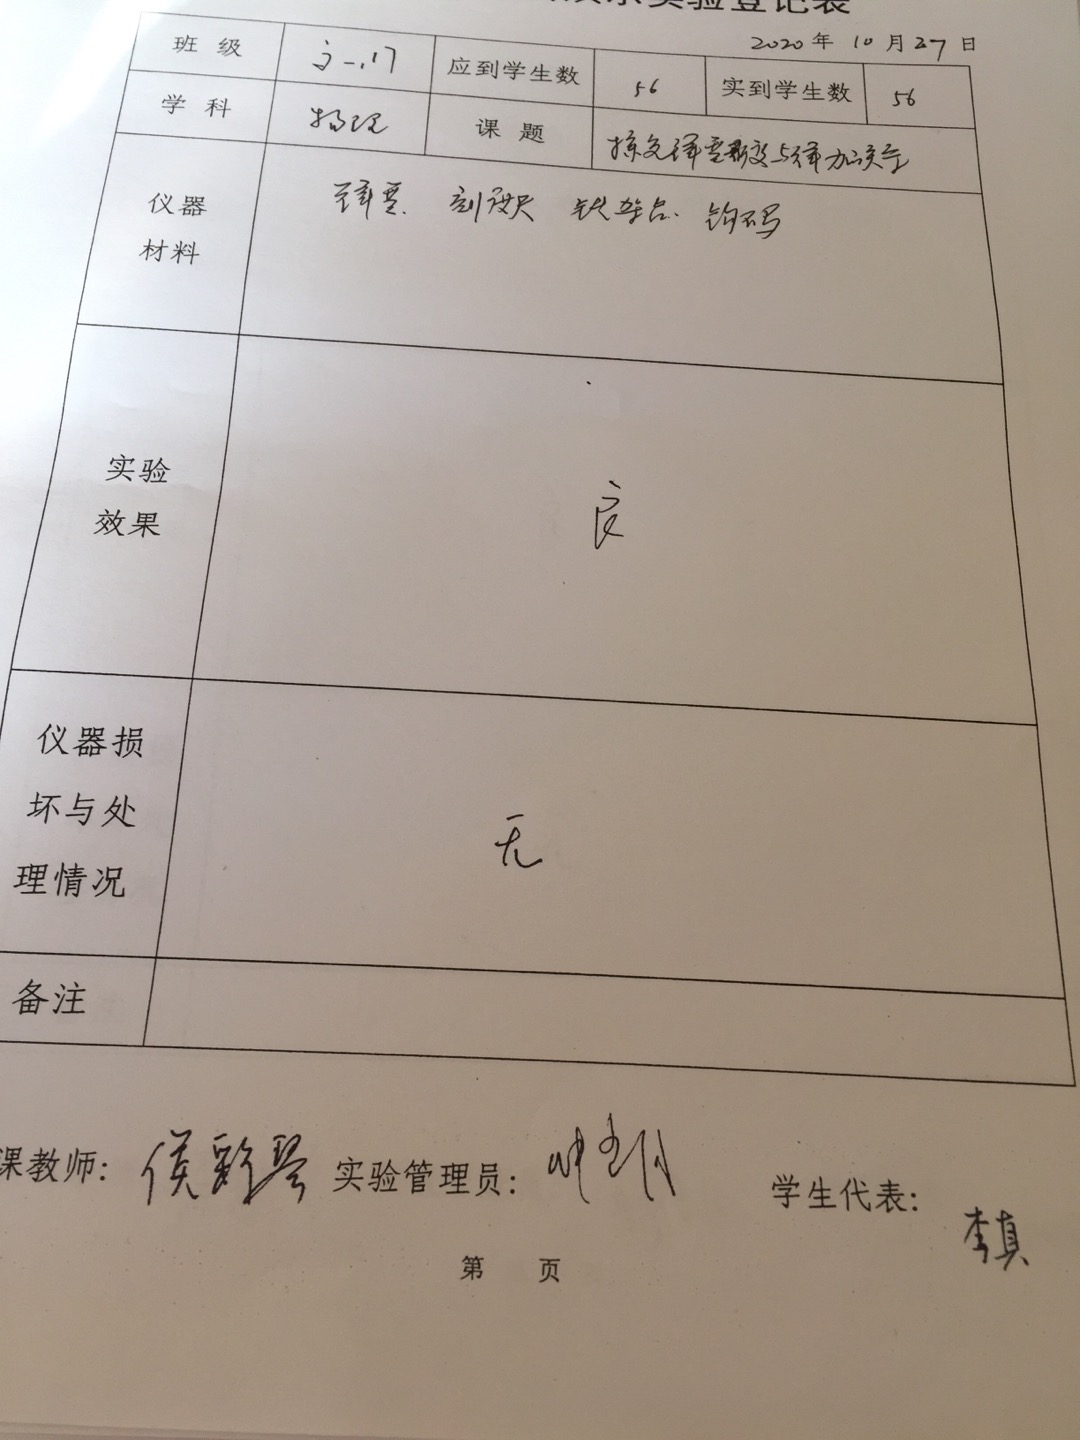 实验登记表
2020年 10月27日
班级 高一.17 应到学生数 56 实到学生数 56
学科 物理 课题 探究弹簧形变与弹力的关系
仪器材料 弹簧 刻度尺 铁架台 钩码
实验效果 良
仪器损坏与处理情况 无
备注
课教师: 侯彩琴 实验管理员: 学生代表: 李真
第 页